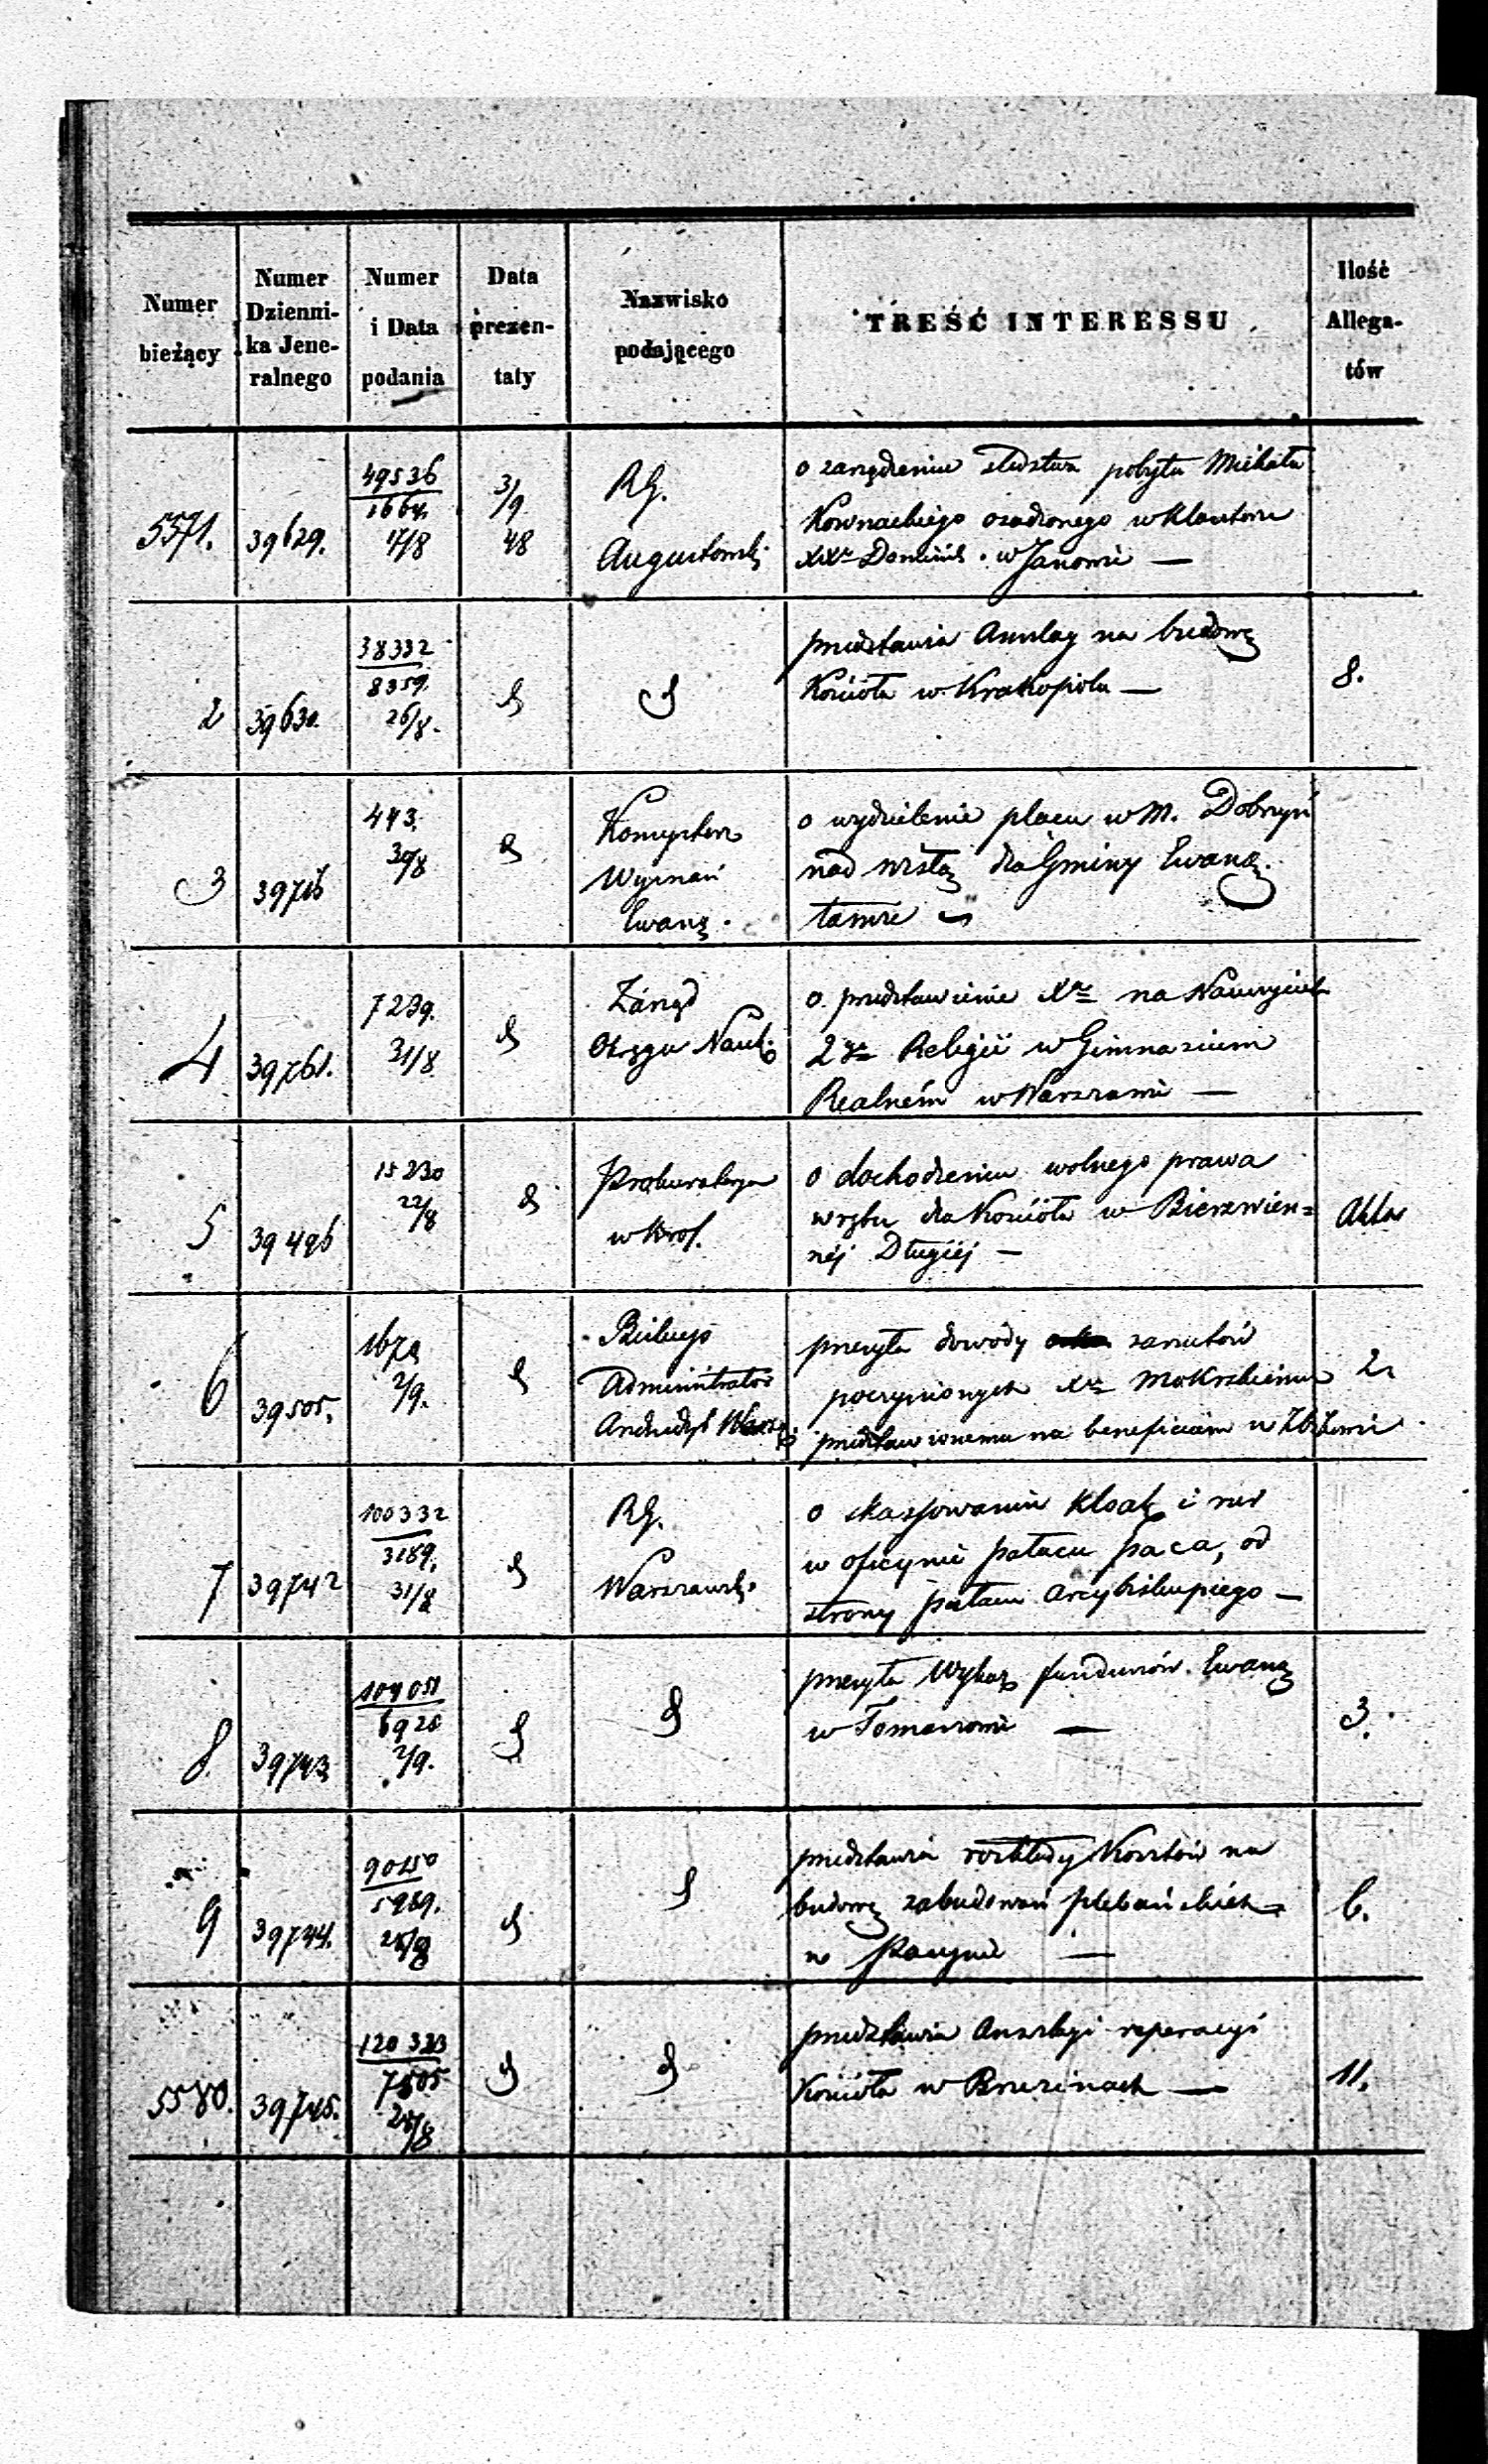 Numer bieżący
Numer Dzienni-
ka Jene-
ralnego
Numer i Data podania
Data prezen-
taty
Nazwisko podającego
TREŚĆ INTERESSU
Ilość Allega-
tów
5571. 39629. 49536
1664.
17/8
3/9
48
RG.
Augustowsk:
o zarządzenie śledztwa pobytu Michała
Kownackiego osadzonego w Klasztorze
XXr Dominik. w Janowie —
2 39630. 38332
8359.
26/8.
przedstawia Anszlag na budowę
Kościoła w Krakopolu —
8.
3 443.
30/8
Konsystorz
Wyznań
Ewang.
o wydzielenie placu w M. Dobrzyń
nad Wisłą dla Gminy Ewang.
tamże
4 39761. 7239.
31/8
Zarząd
Okręgu Nauk:
o przedstawienie Xa na Nauczyciela
2go Religii w Gimnazium
Realném w Warszawie —
5 39496 15230
22/8
Prokuratorya
w Król.
o dochodzeniu wolnego prawa
wrębu dla Kościoła w Bierzwien=
néj Długiéj —
Akta
6 39505. 1679
2/9.
Administrator
Archidyec Warsz:
przesyła dowody zarzutów
poczynionych Xu
przedstawionemu na beneficium w
2.
7 39742 100332
3189.
31/8
RG.
Warszawsk:
o skassowanie Kloak i rur
w oficynie pałacu Paca, od
strony pałacu Arcybiskupiego —
8. 39743
6926
2/9.
przesyła Wykaz funduszów Ewang
w Tomaszowie —
3.
9 39744. 90150
5989.
przedstawia rozkłady Kosztów na
budowę zabudowań plebańskich
w —
6.
5580. 39745. 120323
7505
28/8
przedstawia Anszlagi reperacyi
Kościoła w Brzezinach —
11.